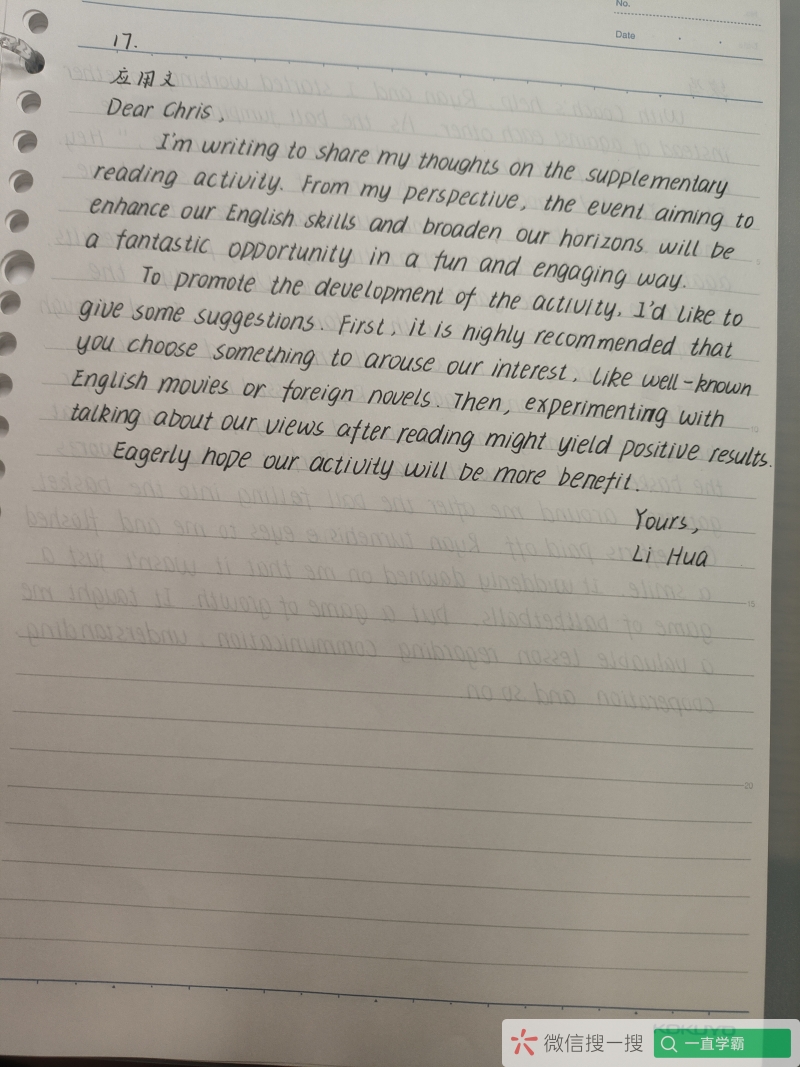 No.
Date
17.
应用文
Dear Chris,
I'm writing to share my thoughts on the supplementary
reading activity. From my perspective, the event aiming to
enhance our English skills and broaden our horizons will be
a fantastic opportunity in a fun and engaging way.
To promote the development of the activity, I'd like to
give some suggestions. First, it is highly recommended that
you choose something to arouse our interest, like well-known
English movies or foreign novels. Then, experimenting with
talking about our views after reading might yield positive results.
Eagerly hope our activity will be more benefit.
Yours,
Li Hua
10
15
20
KOKUYO
微信搜一搜
一直学霸